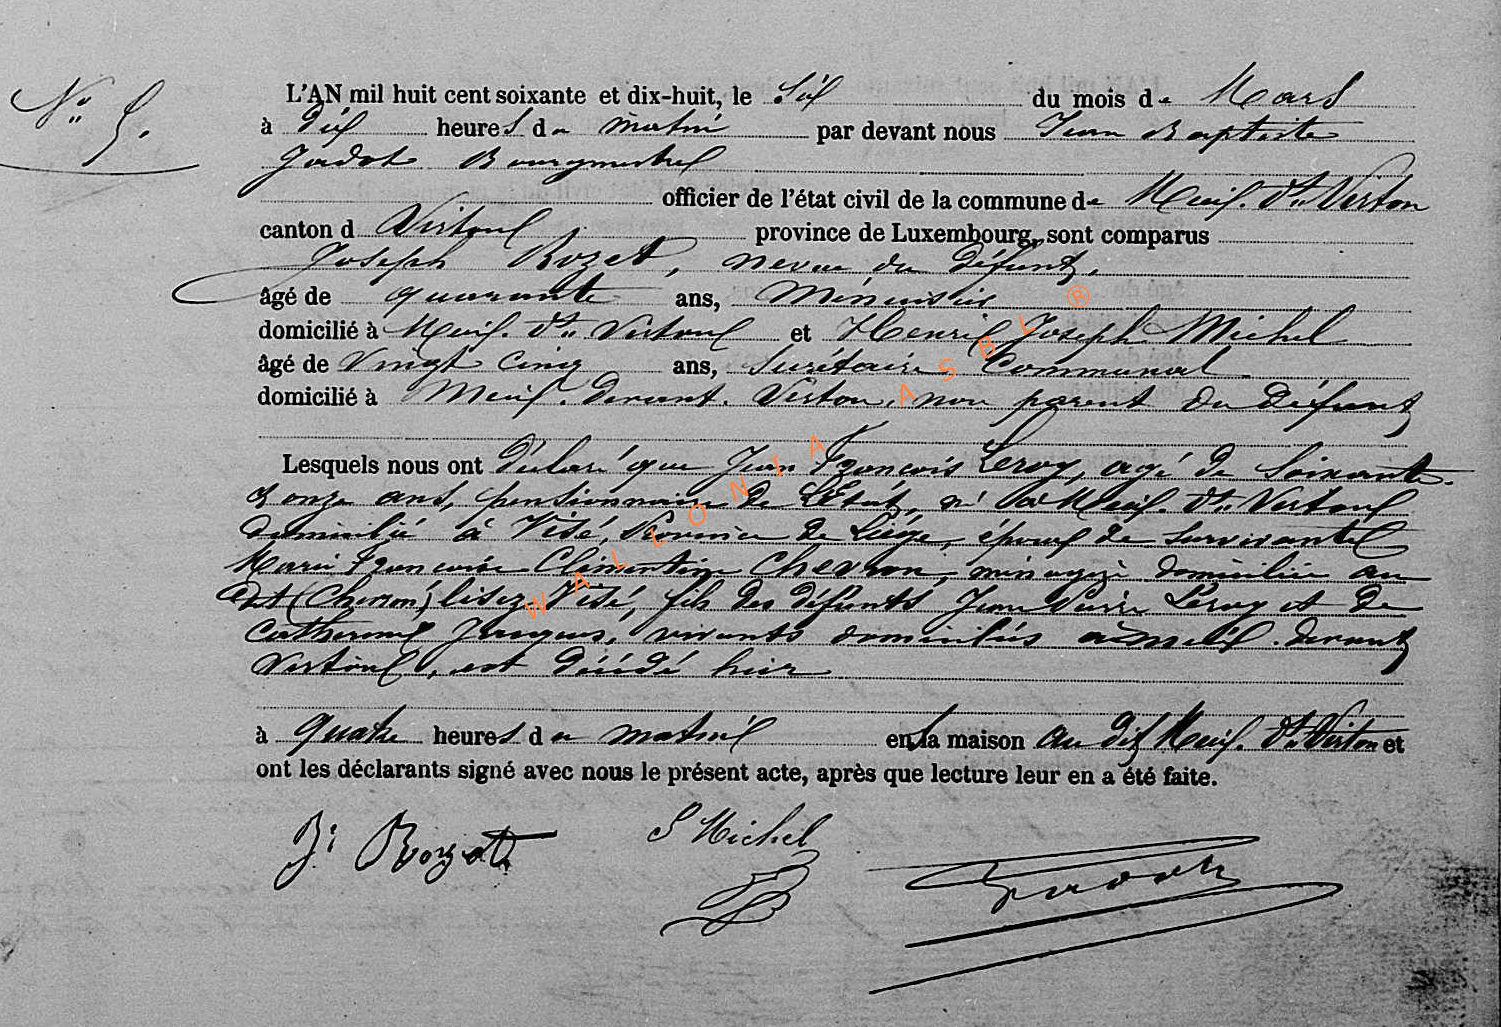 N° 5.
L'AN mil huit cent soixante et dix-huit, le Six du mois de Mars
à dix heures du matin par devant nous Jean Baptiste
Jadot Bourgmestre
officier de l'état civil de la commune de Meix. dt. Virton
canton d Virton province de Luxembourg, sont comparus
Joseph Rozet, neveu du défunt,
âgé de quarante ans, Menuisier
domicilié à Meix. dt. Virton et Henri Joseph Michel
âgé de Vingt cinq ans, Secrétaire Communal
domicilié à Meix. devant. Virton, non parent du défunt
Lesquels nous ont déclaré que Jean François Leroy, agé de Soixante.
et onze ans, pensionnaire de L'Etat, né à Meix. dt. Virton
domicilié à Visé, Province de Liége, époux de survivante
Marie Françoise Clémentine Chevron, ménagère domiciliée au
dit (Chevron) lisez Visé, fils des défunts Jean Pierre Leroy et de
Catherine Jacques, vivants domiciliés à Meix. devant
Virton, est décédé hier
à quatre heures du matin en sa maison au dit Meix. dt. Virton et
ont les déclarants signé avec nous le présent acte, après que lecture leur en a été faite.
J. Rozet Michel Jadot
WALLONIA ASBL ®